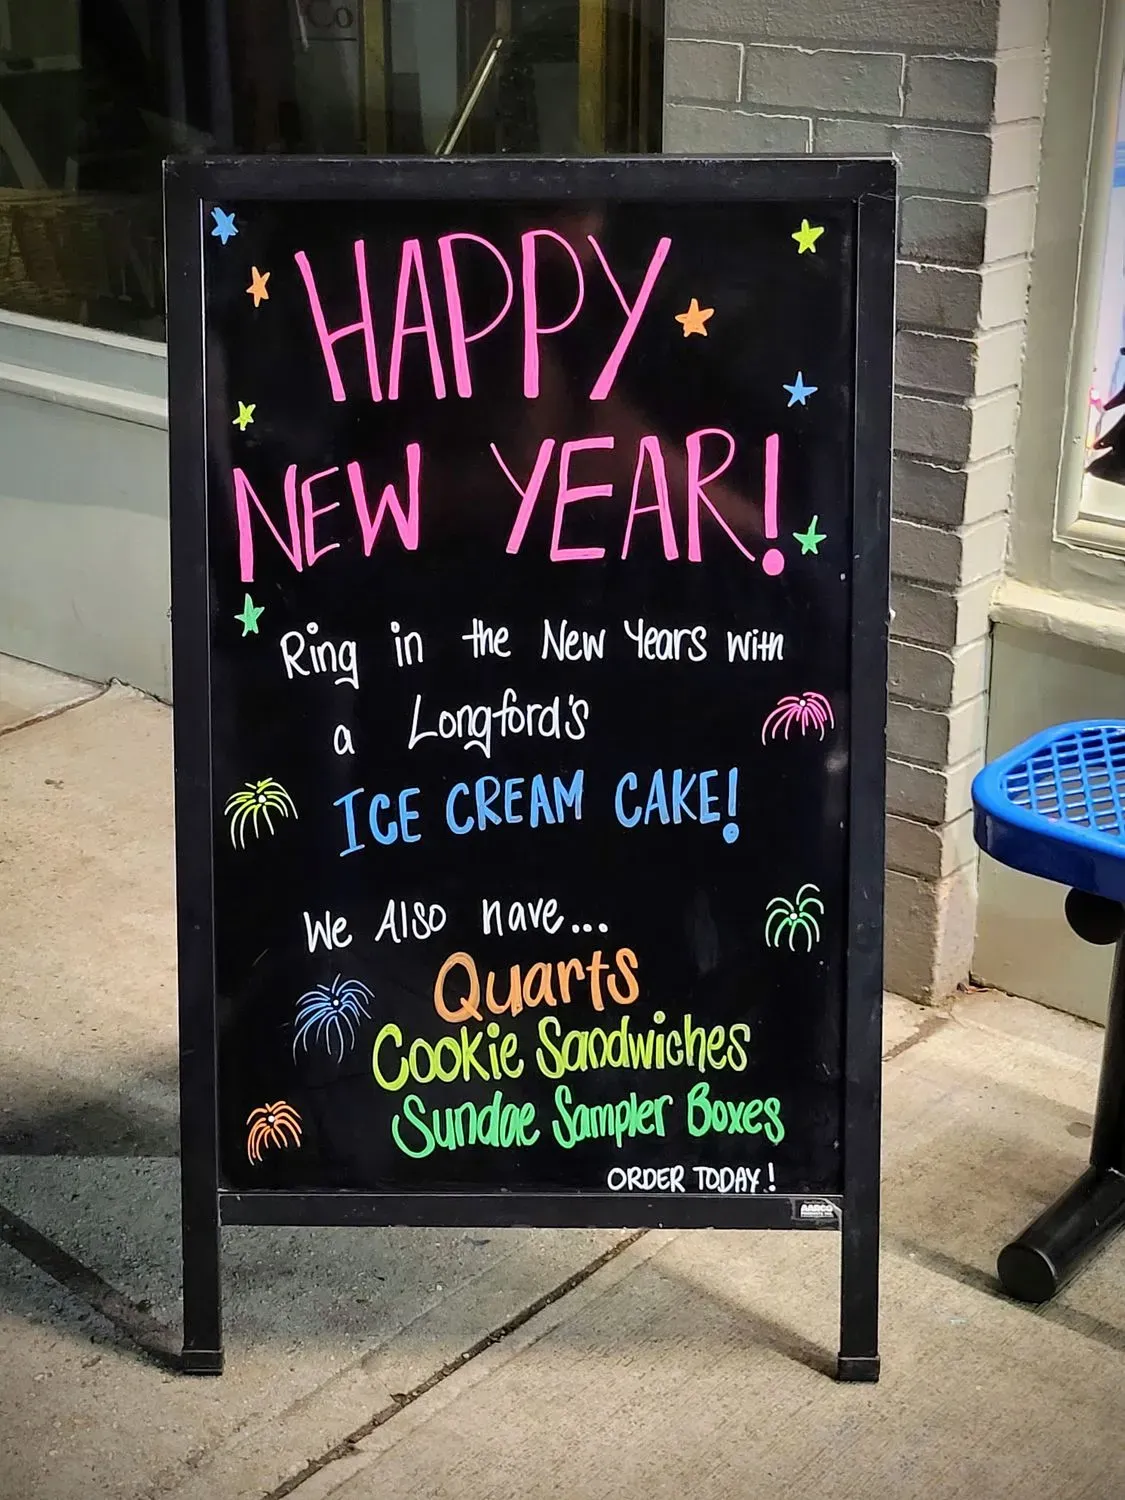 Co
HAPPY
NEW YEAR!
Ring in the New Years with
a Longford's
ICE CREAM CAKE!
We Also have...
Quarts
Cookie Sandwiches
Sundae Sampler Boxes
ORDER TODAY!
AARCO